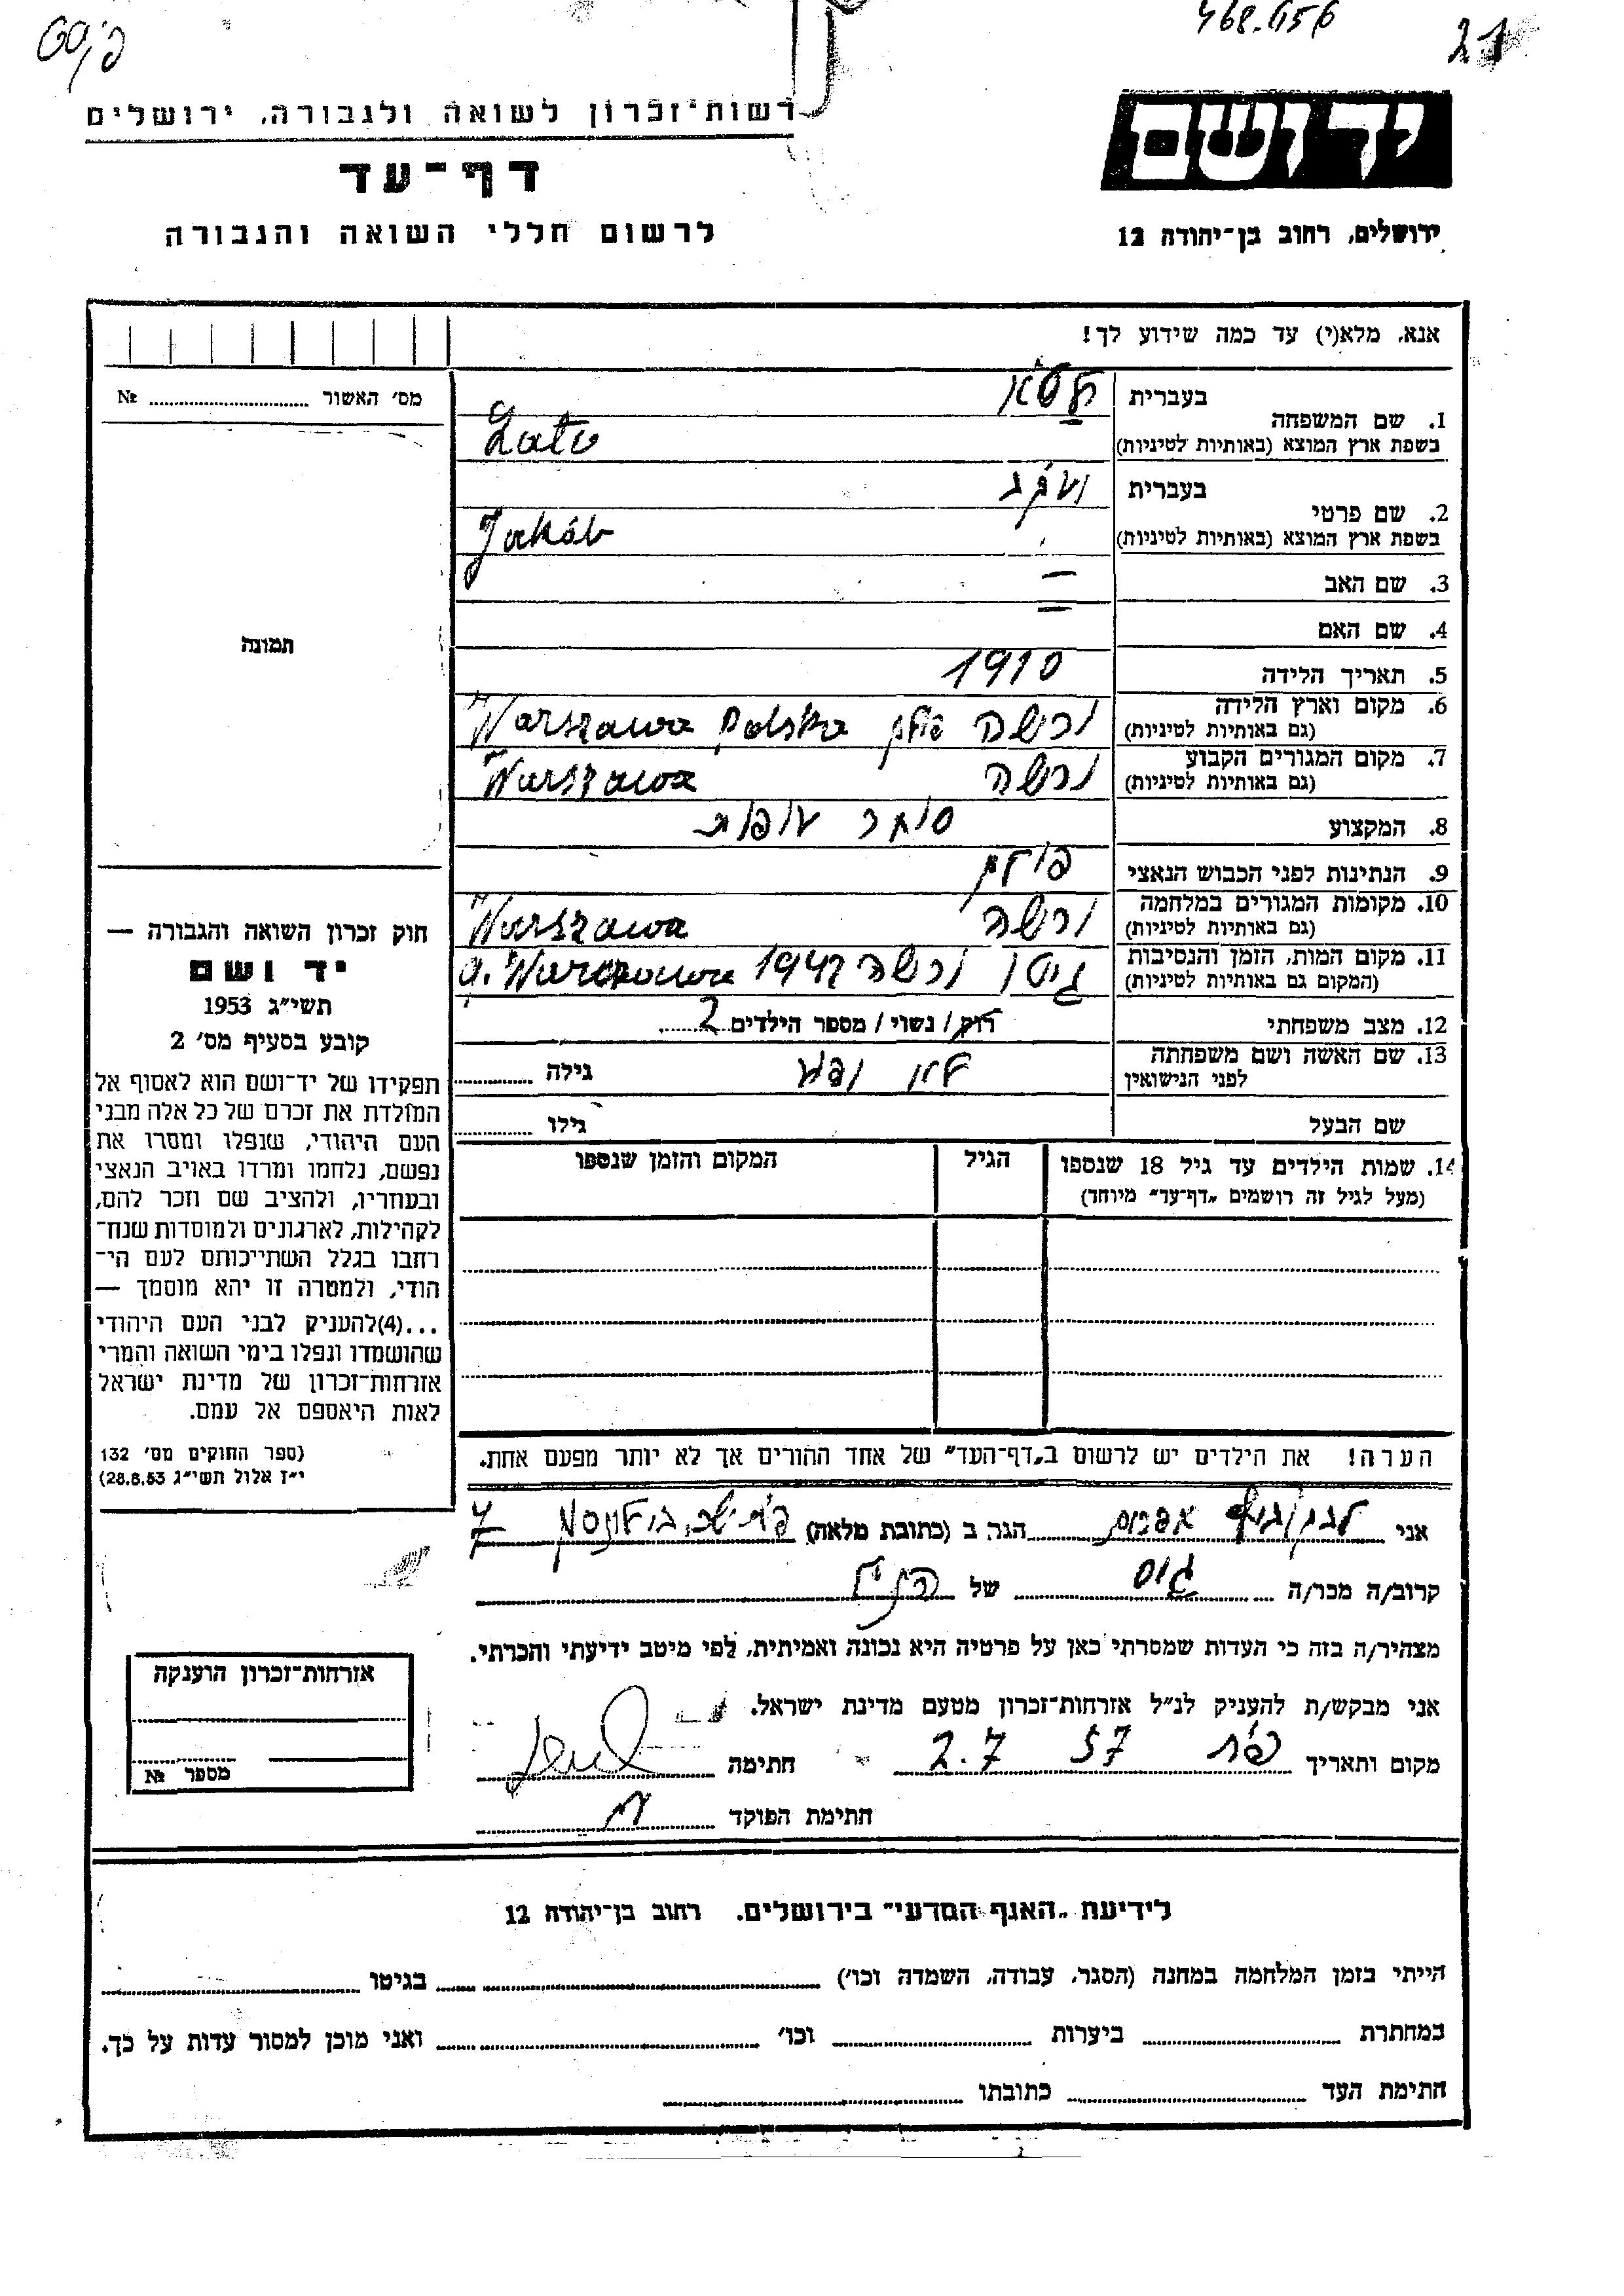 468.656
21
רשות־זכרון לשואה ולגבורה, ירושלים
יד ושם
דף־עד
לרשום חללי השואה והגבורה
ירושלים, רחוב בן־יהודה 12
אנא, מלא(י) עד כמה שידוע לך!
מס׳ האשור № 
1. שם המשפחה בעברית
בשפת ארץ המוצא (באותיות לטיניות)
2. שם פרטי בעברית יעקב
בשפת ארץ המוצא (באותיות לטיניות) Jakób
3. שם האב —
4. שם האם —
תמונה
5. תאריך הלידה 1910
6. מקום וארץ הלידה ורשה פולין Warszawa Polska
(גם באותיות לטיניות)
7. מקום המגורים הקבוע ורשה Warszawa
(גם באותיות לטיניות)
8. המקצוע סוחר עופות
9. הנתינות לפני הכבוש הנאצי פולין
10. מקומות המגורים במלחמה ורשה Warszawa
(גם באותיות לטיניות)
11. מקום המות, הזמן והנסיבות גיטו ורשה 1942 g. Warszawa
(המקום גם באותיות לטיניות)
12. מצב משפחתי רוק / נשוי / מספר הילדים 2
13. שם האשה ושם משפחתה גילה
לפני הנישואין
שם הבעל גילו
14. שמות הילדים עד גיל 18 שנספו הגיל המקום והזמן שנספו
(מעל לגיל זה רושמים „דף־עד״ מיוחד)
חוק זכרון השואה והגבורה —
יד ושם
תשי״ג 1953
קובע בסעיף מס׳ 2
תפקידו של יד־ושם הוא לאסוף אל
המולדת את זכרם של כל אלה מבני
העם היהודי, שנפלו ומסרו את
נפשם, נלחמו ומרדו באויב הנאצי
ובעוזריו, ולהציב שם וזכר להם,
לקהילות, לארגונים ולמוסדות שנח־
רחבו בגלל השתייכותם לעם הי־
הודי, ולמטרה זו יהא מוסמך —
...(4)להעניק לבני העם היהודי
שהושמדו ונפלו בימי השואה והמרי
אזרחות־זכרון של מדינת ישראל
לאות היאספם אל עמם.
(ספר החוקים מס׳ 132
י״ז אלול תשי״ג 28.8.53)
הערה! את הילדים יש לרשום ב„דף־העד״ של אחד ההורים אך לא יותר מפעם אחת.
אני הגר ב (כתובת מלאה) 7
קרוב/ה מכר/ה גיס של הנ״ל
מצהיר/ה בזה כי העדות שמסרתי כאן על פרטיה היא נכונה ואמיתית, לפי מיטב ידיעתי והכרתי.
אני מבקש/ת להעניק לנ״ל אזרחות־זכרון מטעם מדינת ישראל.
מקום ותאריך 2.7 57 חתימה
חתימת הפוקד
אזרחות־זכרון הוענקה
מספר №
לידיעת „האגף המדעי״ בירושלים, רחוב בן־יהודה 12
הייתי בזמן המלחמה במחנה (הסגר, עבודה, השמדה וכו׳) בגיטו
במחתרת ביערות וכו׳ ואני מוכן למסור עדות על כך.
חתימת העד כתובתו